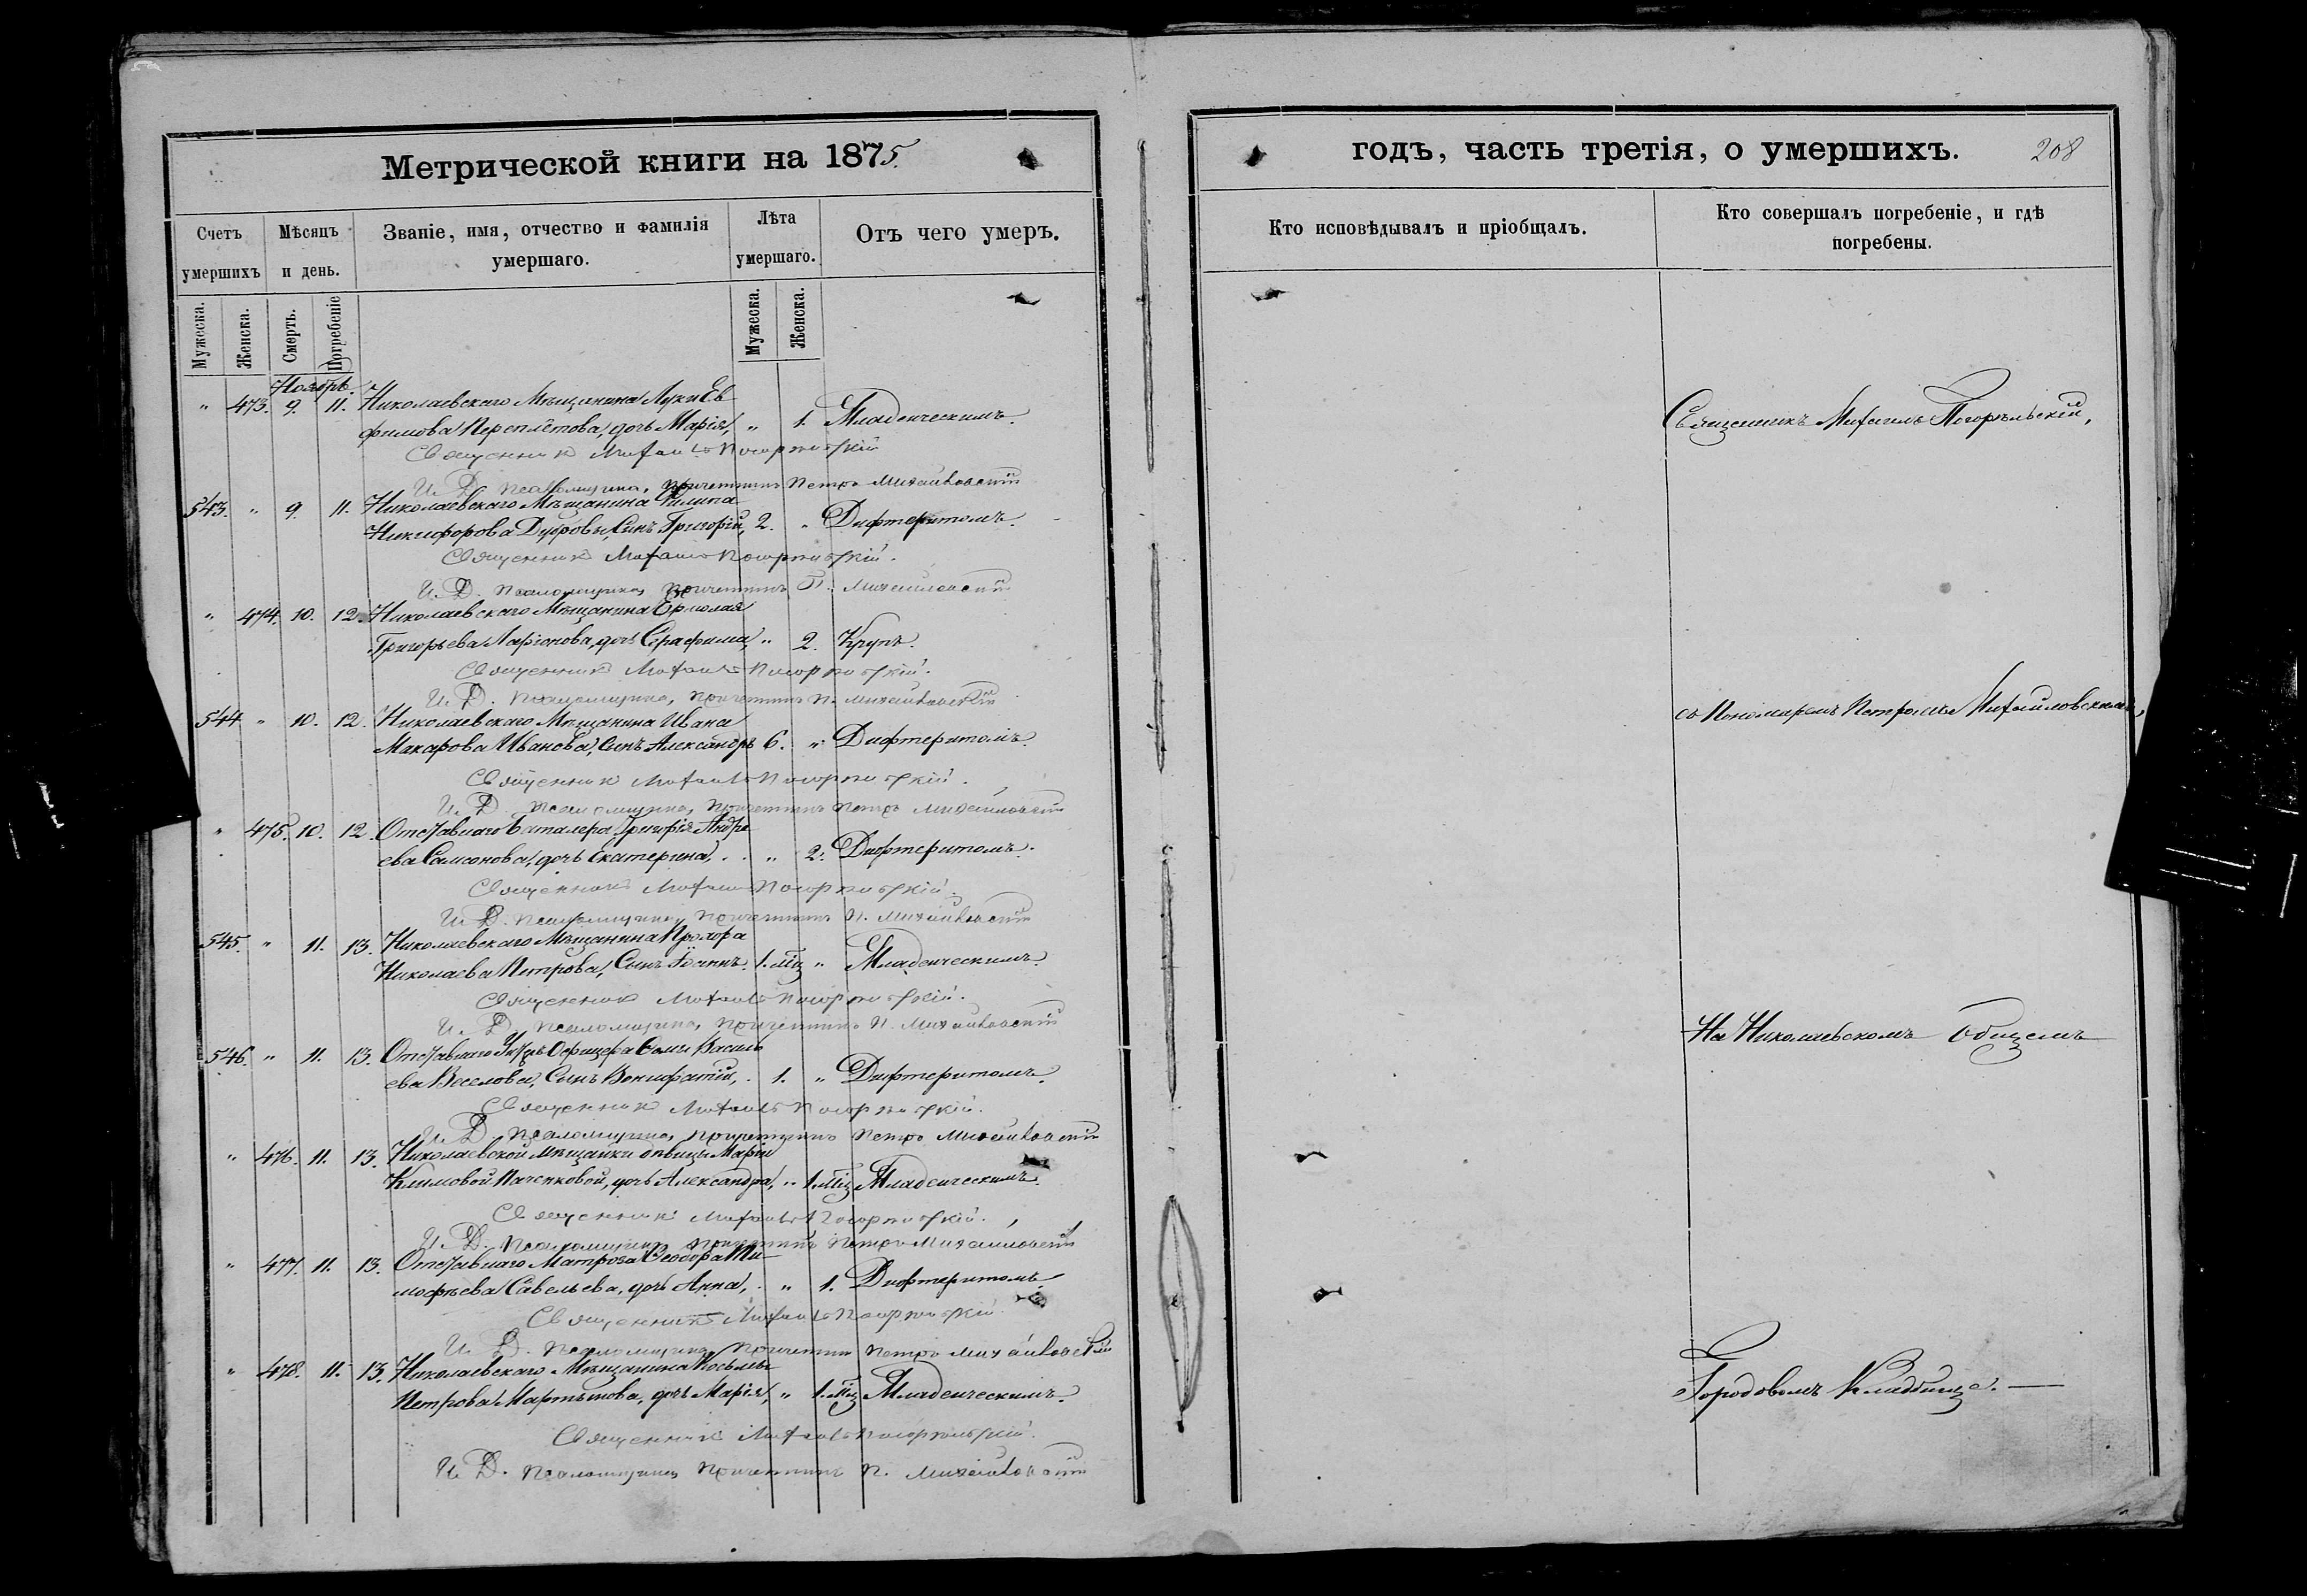 Метрической книги на 1875.
Счетъ умершихъ
Мѣсяцъ и день.
Званіе, имя, отчество и фамилія умершаго.
Лѣта умершаго.
Отъ чего умеръ.
Мужеска. Женска. Смерть. Погребеніе Мужеска. Женска.
Ноябрь.
" 473. 9. 11. Николаевскаго Мѣщанина Луки Ев
фимова Переплётова, дочь Марія, " 1. Младенческимъ.
Священникъ Михаилъ Погорѣльскій
И. Д. Псаломщика, причетникъ Петръ Михайловскій
543. " 9. 11. Николаевскаго Мѣщанина Филипа
Никифорова Дубровы, Сынъ Григорій, 2. " Дифтеритомъ.
Священникъ Михаилъ Погорѣльскій.
И. Д. Псаломщика, причетникъ П. Михайловскій
" 474. 10. 12. Николаевскаго Мѣщанина Ермолая
Григорьева Ларіонова, дочь Серафима, " 2. Крупъ.
Священникъ Михаилъ Погорѣльскій.
И. Д. Псаломщика, причетникъ П. Михайловскій
544 " 10. 12. Николаевскаго Мѣщанина Ивана
Макарова Иванова, Сынъ Александръ 6. " Дифтеритомъ.
Священникъ Михаилъ Погорѣльскій.
И. Д. Псаломщика, причетникъ Петръ Михайловскій
" 475. 10. 12. Отставнаго Баталера Григорія Андре
ева Самсонова, дочь Екатерина, . . " 2. Дифтеритомъ.
Священникъ Михаилъ Погорѣльскій.
И. Д. Псаломщика, причетникъ П. Михайловскій
545. " 11. 13. Николаевскаго Мѣщанина Прохора
Николаева Петрова, Сынъ Іоаннъ. 1. мц " Младенческимъ.
Священникъ Михаилъ Погорѣльскій.
И. Д. Псаломщика, причетникъ П. Михайловскій
546. " 11. 13. Отставнаго Унтеръ Офицера Василь
ева Веселова, Сынъ Вонифатій, . 1. " Дифтеритомъ.
Священникъ Михаилъ Погорѣльскій.
И. Д. Псаломщика, причетникъ Петръ Михайловскій
" 476. 11. 13. Николаевской Мѣщанки дѣвицы Маріи
Климовой Паченковой, дочь Александра, " 1. мц Младенческимъ.
Священникъ Михаилъ Погорѣльскій.
И. Д. Псаломщика, причетникъ Петръ Михайловскій
" 477. 11. 13. Отставнаго Матроса Ѳеодора Ти
мофѣева Савельева, дочь Анна, . " 1. Дифтеритомъ.
Священникъ Михаилъ Погорѣльскій
И. Д. Псаломщика, причетникъ Петръ Михайловскій
" 478. 11. 13. Николаевскаго Мѣщанина Косьмы
Петрова Мартынова, дочь Марія, " 1. мц Младенческимъ.
Священникъ Михаилъ Погорѣльскій.
И. Д. Псаломщика, причетникъ П. Михайловскій
годъ, часть третія, о умершихъ. 208
Кто исповѣдывалъ и пріобщалъ.
Кто совершалъ погребеніе, и гдѣ погребены.
Священникъ Михаилъ Погорѣльскій,
съ Пономаремъ Петромъ Михайловскимъ,
На Николаевскомъ Общемъ
Городовомъ Кладбище. —